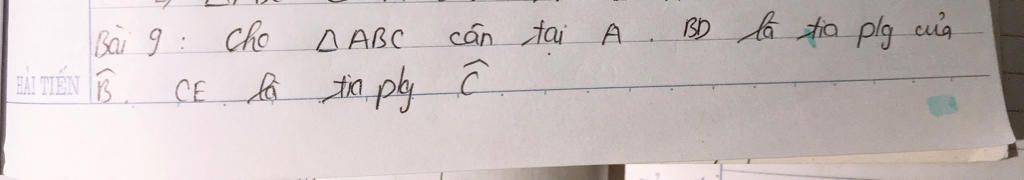 Bài 9 : Cho △ABC cân tại A . BD là tia plg của
HẢI TIẾN B̂. CE là tia plg Ĉ